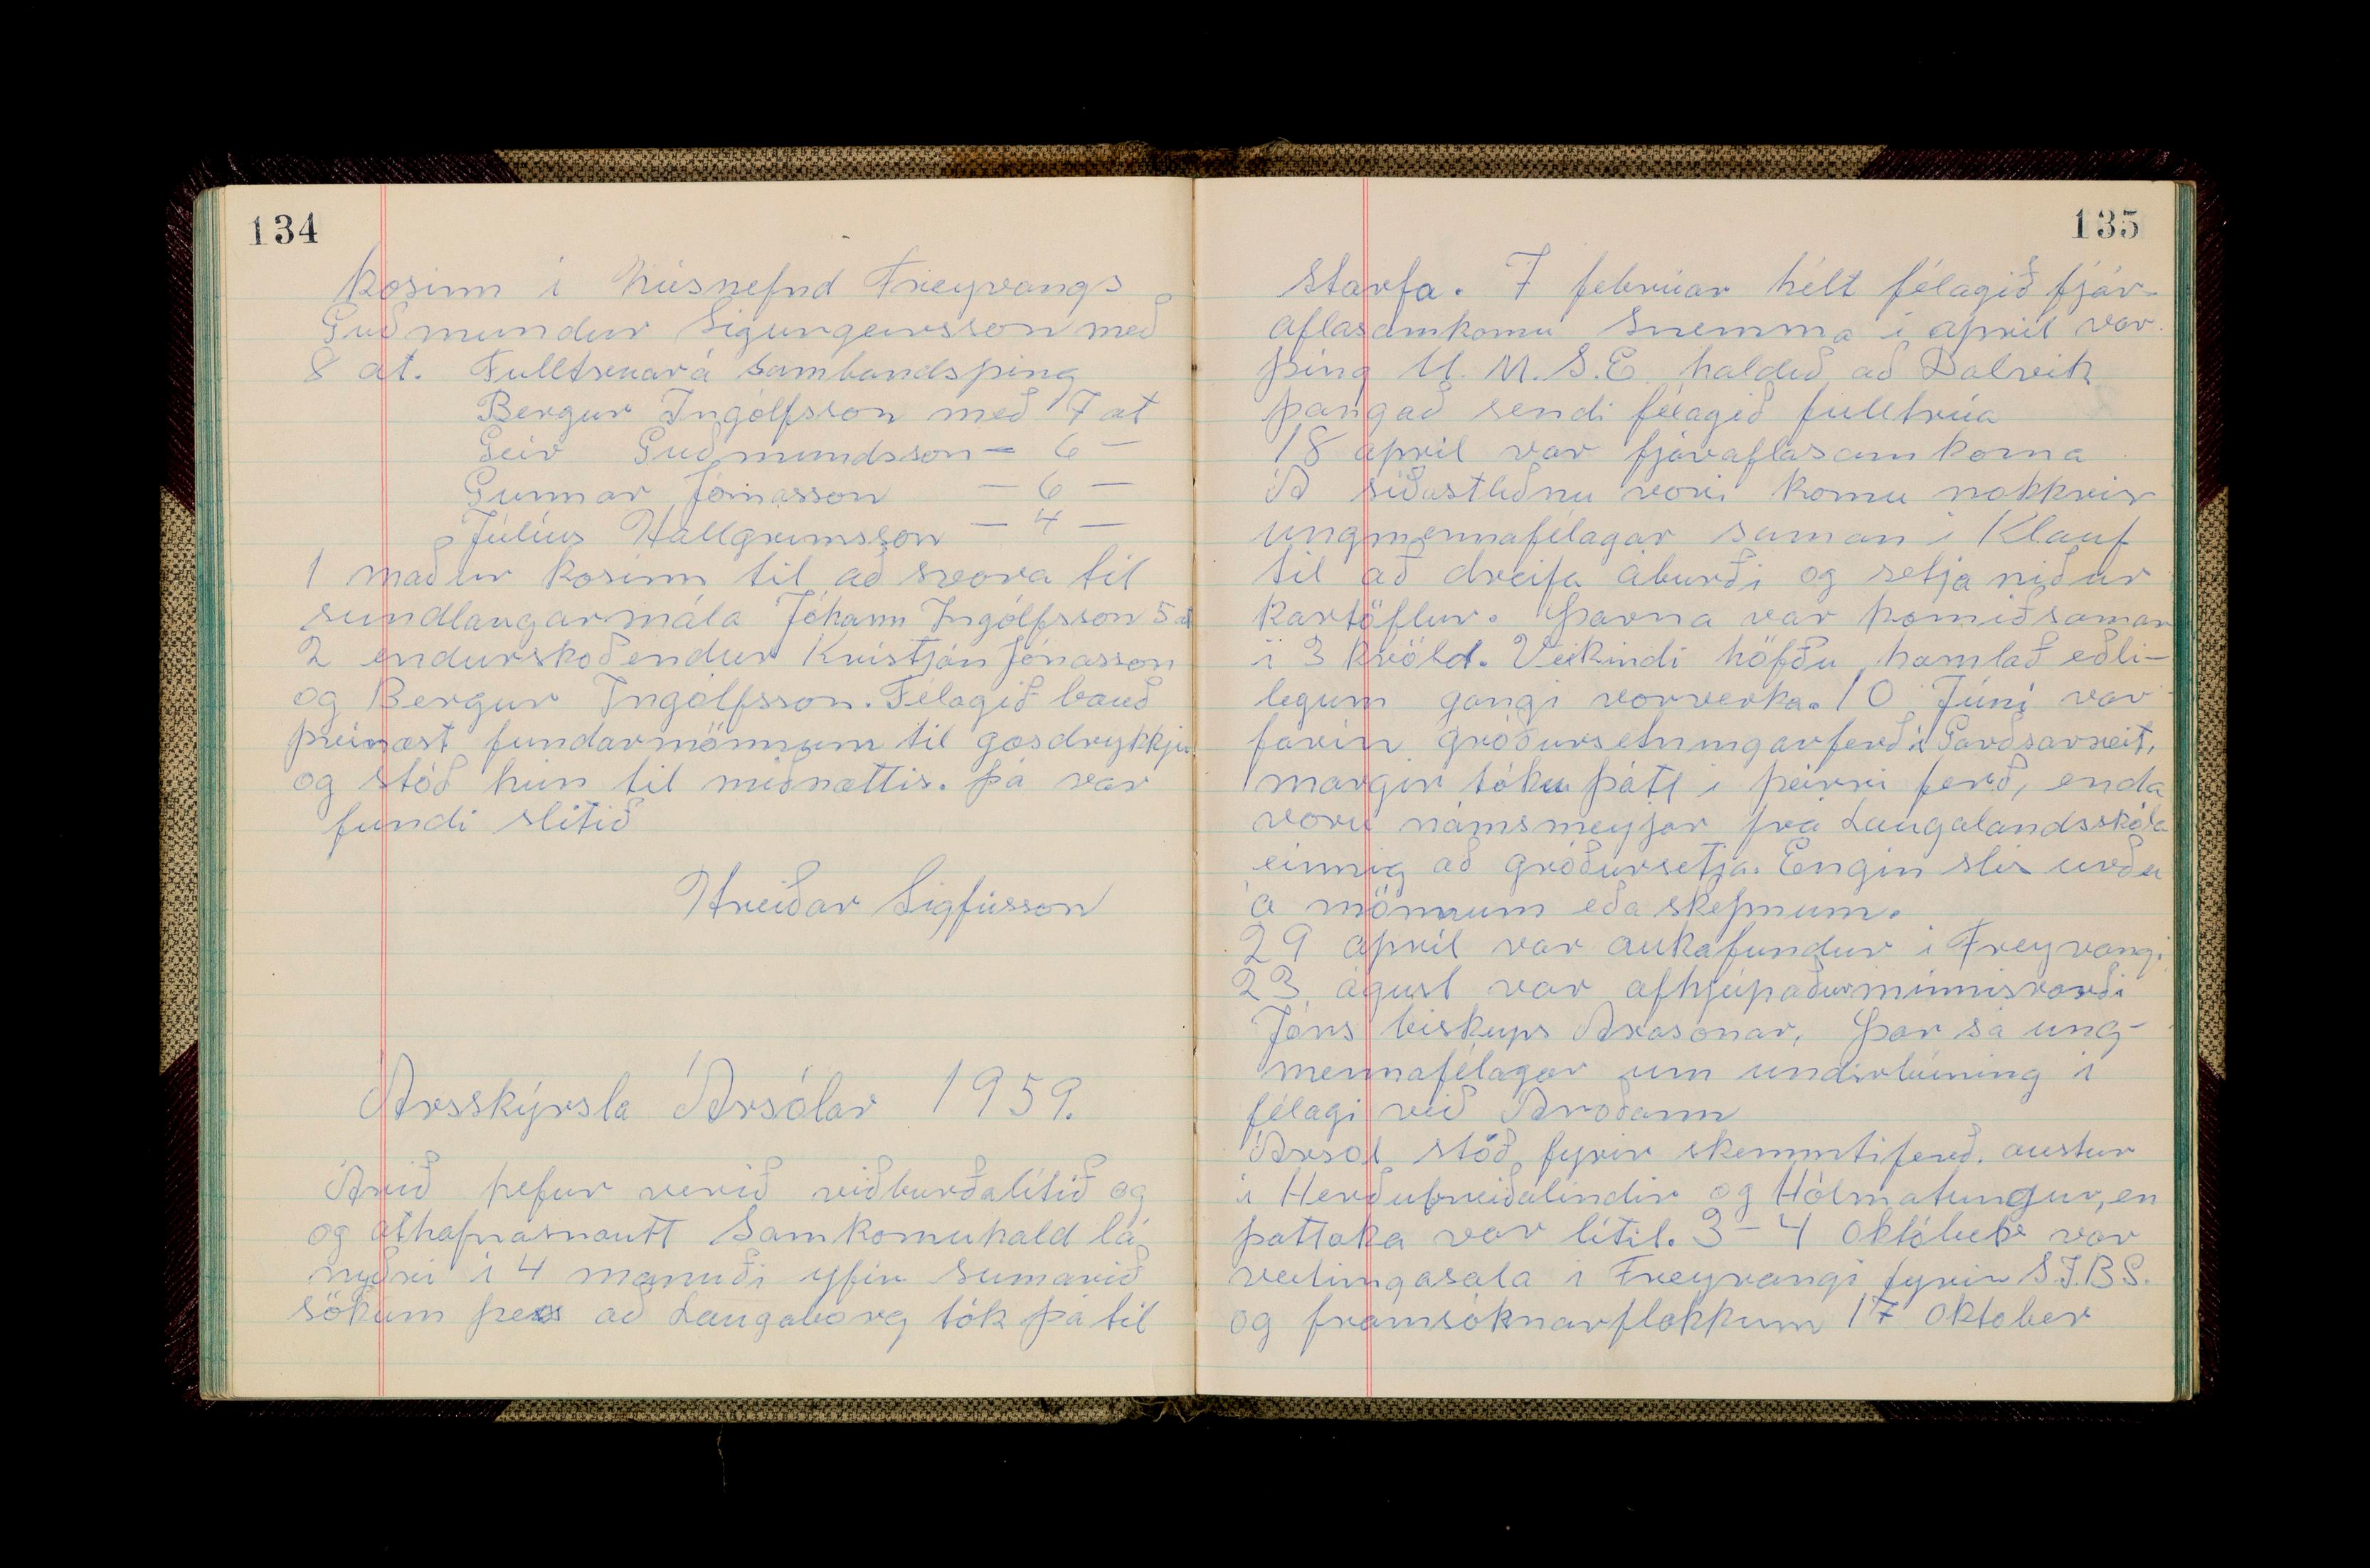 134
kosinn i húsnefnd Freyvangs
Guðmundur Sigurgeirsson með
8 at. Fulltruar á sambandsþing
Bergur Ingólfsson með 7 at
Geir Guðmundsson – 6 –
Gunnar Jónasson – 6 –
Júlíus Hallgrimsson – 4 –
1 maður kosinn til að svara til
sundlaugarmála Jóhann Ingólfsson 5 at
2 endurskoðendur Kristján Jónasson
og Bergur Ingólfsson. Félagið bauð
þvinæst fundarmönnum til gosdrykkju
og stóð hún til miðnættis. Þá var
fundi slitið
Hreiðar Sigfússon
Ársskýrsla Ársólar 1959.
Árið hefur verið viðburðalítið og
og athafnasnautt Samkomuhald lá
nyðri i 4 manuði yfir sumarið
sökum þess að Laugaborg tók þá til
135
starfa. 7 febrúar hélt félagið fjár-
aflasamkomu Snemma i april var
þing U.M.S.E. haldið að Dalvik
þangað sendi félagið fulltrúa
18 april var fjáraflasamkoma
Á síðastliðnu vori komu nokkrir
ungmennafélagar saman i Klauf
til að dreifa áburði og setja niður
kartöflur. Þarna var komið saman
i 3 kvöld. Veikindi höfðu hamlað eðli-
legum gangi vorverka. 10 Júni var
farin gróðursetningarferð i Garðsárreit,
margir tóku þátt i þeirri ferð, enda
voru námsmeyjar frá Laugalandsskóla
einnig að gróðursetja. Engin slis urðu
á mönnum eða skepnum.
29 april var aukafundur i Freyvangi
23 ágúst var afhjúpaður minnisvarði
Jóns biskups Arasonar, Þar sá ung-
mennafélagar um undirbúning i
félagi við Ároðann
Ársól stóð fyrir skemmtiferð. austur
i Herðubreiðalindir og Hólmatungur, en
þattaka var lítil. 3 – 4 október var
veitingasala i Freyvangi fyrir S.F.B.S.
og framsóknarflokkum 17 oktober